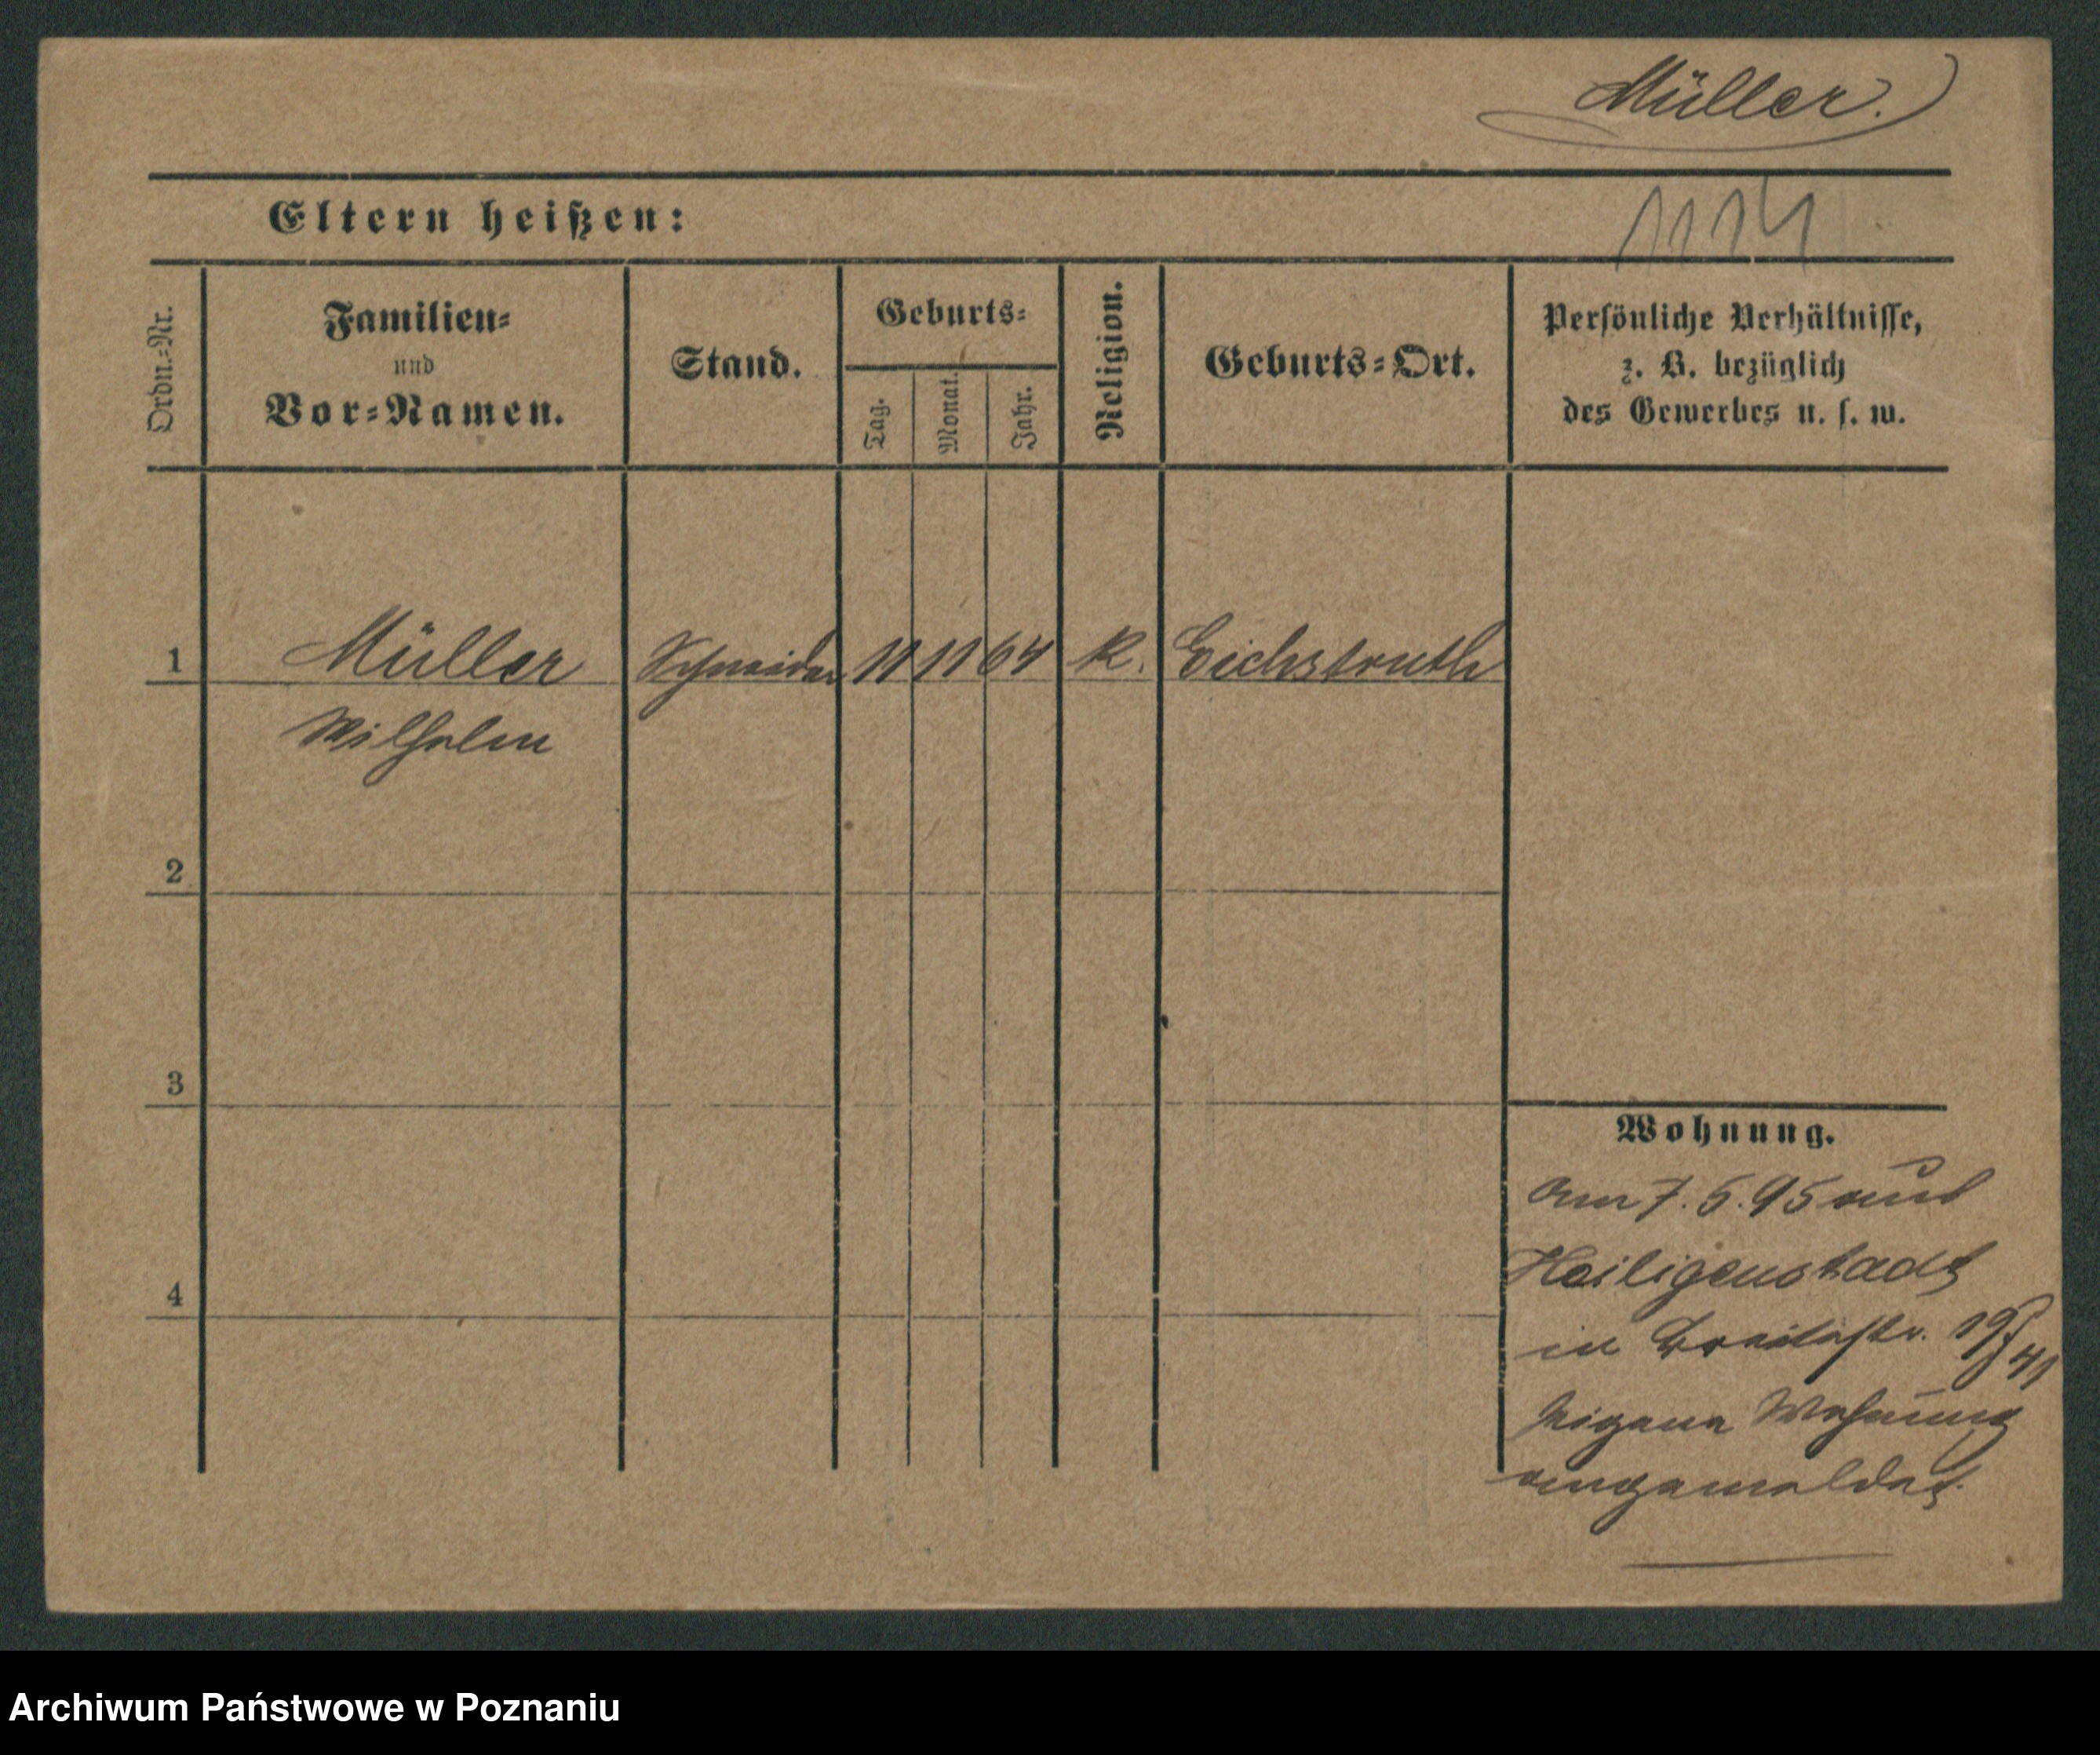 Müller.
1114
Eltern heißen:
Ordn.=Nr.
Familien=
und
Vor=Namen.
Stand.
Geburts=
Tag.
Monat.
Jahr.
Religion.
Geburts=Ort.
Persönliche Verhältnisse,
z. B. bezüglich
des Gewerbes u. s. w.
1 Müller Schneider 11 11 64 K. Eichstruth
Wilhelm
2
3
4
Wohnung.
Am 7. 5. 95 aus
Heiligenstadt
in Breitestr. 19/41
eigene Wohnung
angemeldet.
Archiwum Państwowe w Poznaniu